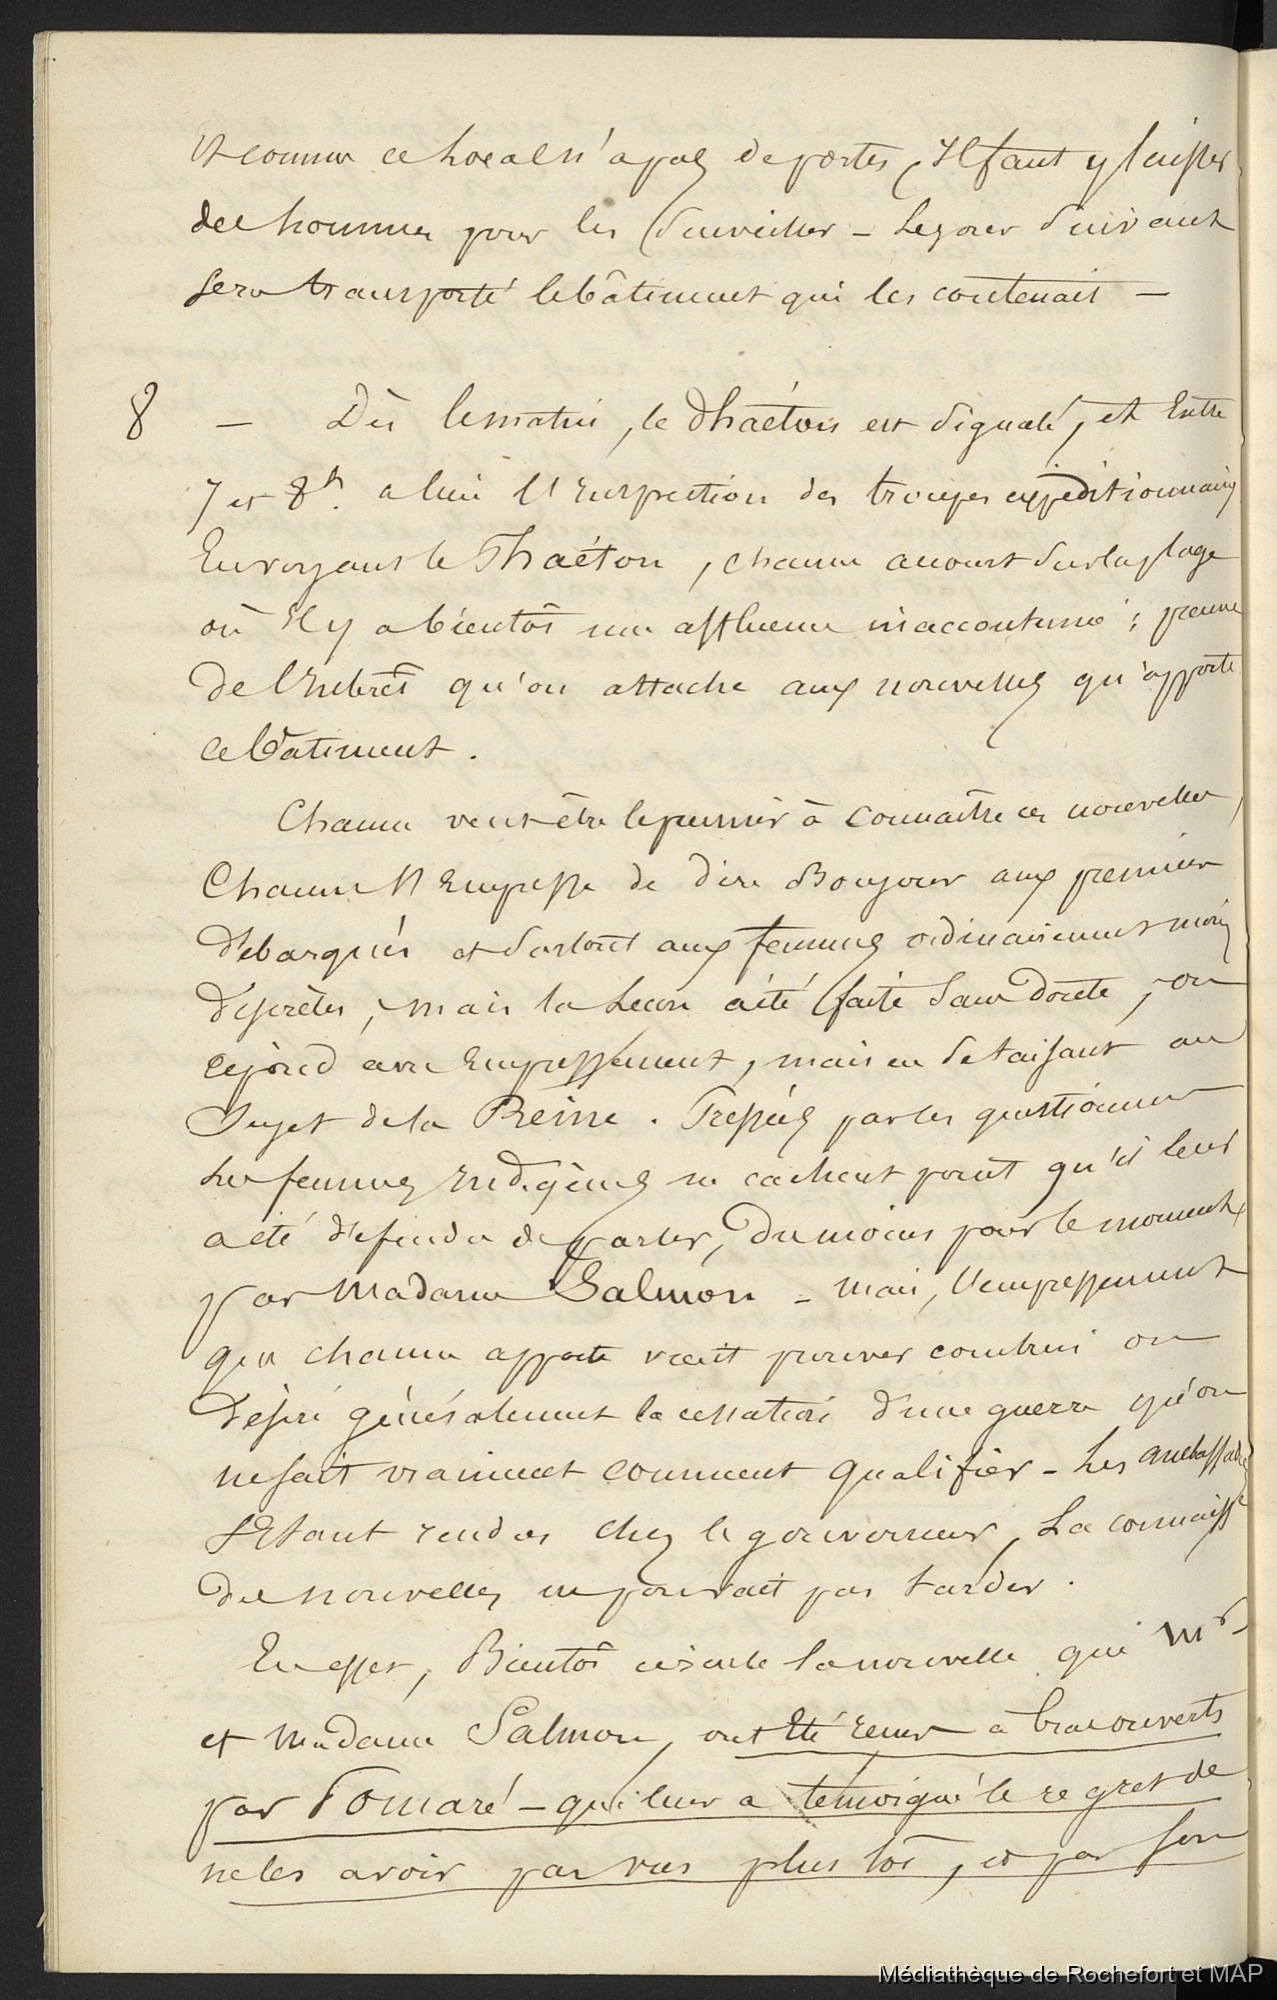 Et comme ce Local n'a pas de portes, Il faut y laisser
des hommes pour les Surveiller - Le jour Suivant
Sera transporté le bâtiment qui les contenait -
8 - Dès le matin, le Phaéton est Signalé, et Entre
7 et 8h. a lieu l'Inspection des troupes expéditionnaires
En voyant le Phaéton, chacun accourt Sur la plage
où Il y a bientôt une affluence inaccoutumée ; preuve
de l'Intérêt qu'on attache aux nouvelles qu'apporte
ce bâtiment.
Chacun veut être le premier à connaître ces nouvelles,
Chacun S'Empresse de dire Bonjour aux premiers
débarqués et Surtout aux femmes ordinairement moins
discrètes, mais la Leçon a été faite Sans doute, on
répond avec Empressement, mais en Se taisant au
Sujet de la Reine. Pressées par les questionneurs
Les femmes Indigènes ne cachent point qu'il leur
a été défendu de parler, du moins pour le moment,
par Madame Salmon - mais, l'empressement
que chacun apporte vient prouver combien on
désire généralement la cessation d'une guerre qu'on
ne sait vraiment comment qualifier - Les ambassad
S'Etant rendus chez le gouverneur, La connaissce
des nouvelles ne pouvait pas tarder.
En effet, Bientôt circule la nouvelle que Mr
et Madame Salmon, ont Eté reçus à bras ouverts
par Pomaré - qui leur a témoigné le regret de
ne les avoir pas vus plus tôt, et par son
Médiathèque de Rochefort et MAP